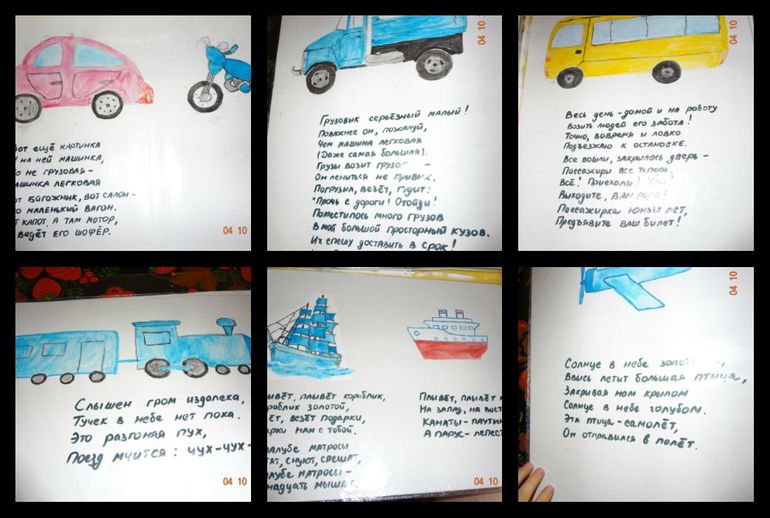 04 10
от ещё картинка
на ней машинка,
о не грузовая -
ашинка легковая
от багожник, вот салон -
о маленький вагон.
т капот, а там мотор,
ведёт его шофёр.
04 10
Грузовик серьёзный малый!
Поважнее он, пожалуй,
Чем машина легковая
(Даже самая большая).
Грузы возит грузо
Он лениться не привык.
Погрузил, везёт, гудит:
"Прочь с дороги! Отойди!
Поместилось много грузов
В мой большой просторный кузов.
Их спешу доставить в срок!
04 10
Весь день - домой и на работу
Возить людей его забота!
Точно, вовремя и ловко
Подъезжаю к остановке.
Все вошли, закрылась дверь -
Пассажиры все теперь.
Всё! Приехали!
Выходите, вам
Пассажирки юных лет,
Предъявите ваш билет!
04 10
Слышен гром издалека,
Тучек в небе нет пока.
Это разгоняя пух,
Поезд мчится: чух-чух-
04 10
ывёт, плывёт кораблик,
раблик золотой,
ёт, везёт подарки,
арки нам с тобой.
палубе матросы
тят, снуют, спешат,
лубе матросы -
надцать мышат.
Плывёт, плывёт
На запад, на вост
Канаты - паутин
А парус - лепест
04 10
Солнце в небе золот
Ввысь летит большая птица,
Закрывая нам крылом
Солнце в небе голубом.
Эта птица - самолёт,
Он отправился в полёт.